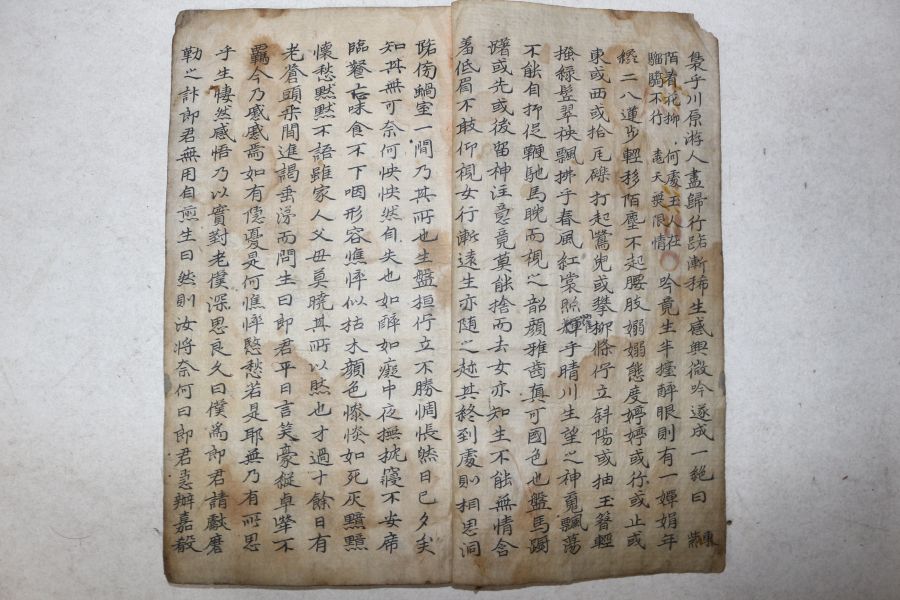 裊乎川原游人盡歸行踪漸稀生感興微吟遂成一絶曰 東紫
陌看花柳 何處玉人在
騮驕不行 無限情 吟竟生半擡醉眼則有一嬋娟年
纔二八蓮步輕移陌塵不起腰肢嫋嫋態度婷婷或行或止或
東或西或拾瓦礫打起鶯兒或攀柳條佇立斜陽或抽玉簪輕
掻綠鬓翠袂飄拂乎春風紅裳照耀乎晴川生望之神魂飄蕩
不能自抑促鞭馳馬睨而視之韶顔雅齒眞可國色也盤馬踟
躕或先或後留神注意竟莫能捨而去女亦知生不能無情含
羞低眉不敢仰視女行漸遠生亦隨之趂其終到處則相思洞
路傍蝸室一間乃其所也生盤桓佇立不勝惆悵然日已夕矣
知其無可奈何怏怏然自失也如醉如癡中夜撫枕寢不安席
臨餐忘味食不下咽形容憔悴似枯木顔色慘惔如死灰黯黯
懷愁默默不語雖家人父母莫曉其所以然也才過十餘日有
老蒼頭乘間進謁垂淚而問生曰郎君平日言笑豪縱卓犖不
羈今乃慼慼焉如有隱憂是何憔悴愍愁若是耶無乃有所思
乎生悽然感悟乃以實對老僕深思良久曰僕爲郎君請獻磨
勒之計郎君無用自煎生曰然則汝將奈何曰郎君急辦嘉殽